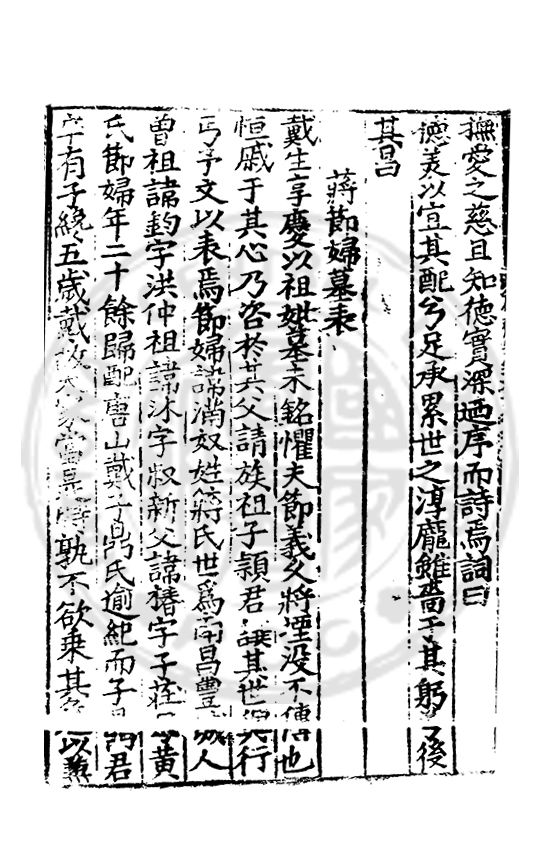 撫愛之慈且知德實深迺序而詩焉詞曰
德美以宜其配兮足承累世之淳龐雖嗇于其躬後
其昌
蔣節婦墓表
戴生享慶以祖妣墓未銘懼夫節義久將堙沒不傳也
恒戚于其心乃咨於其父請族祖子頴君其世行
丐予文以表焉節婦諱滿奴姓蔣氏世爲南昌豐城人
曾祖諱鈞字洪仲祖諱沐字叔新父諱椿字子莊黃
氏節婦年二十餘歸配唐山戴氏逾紀而子君
卒有子纔五歲戴孰不欲乘其以